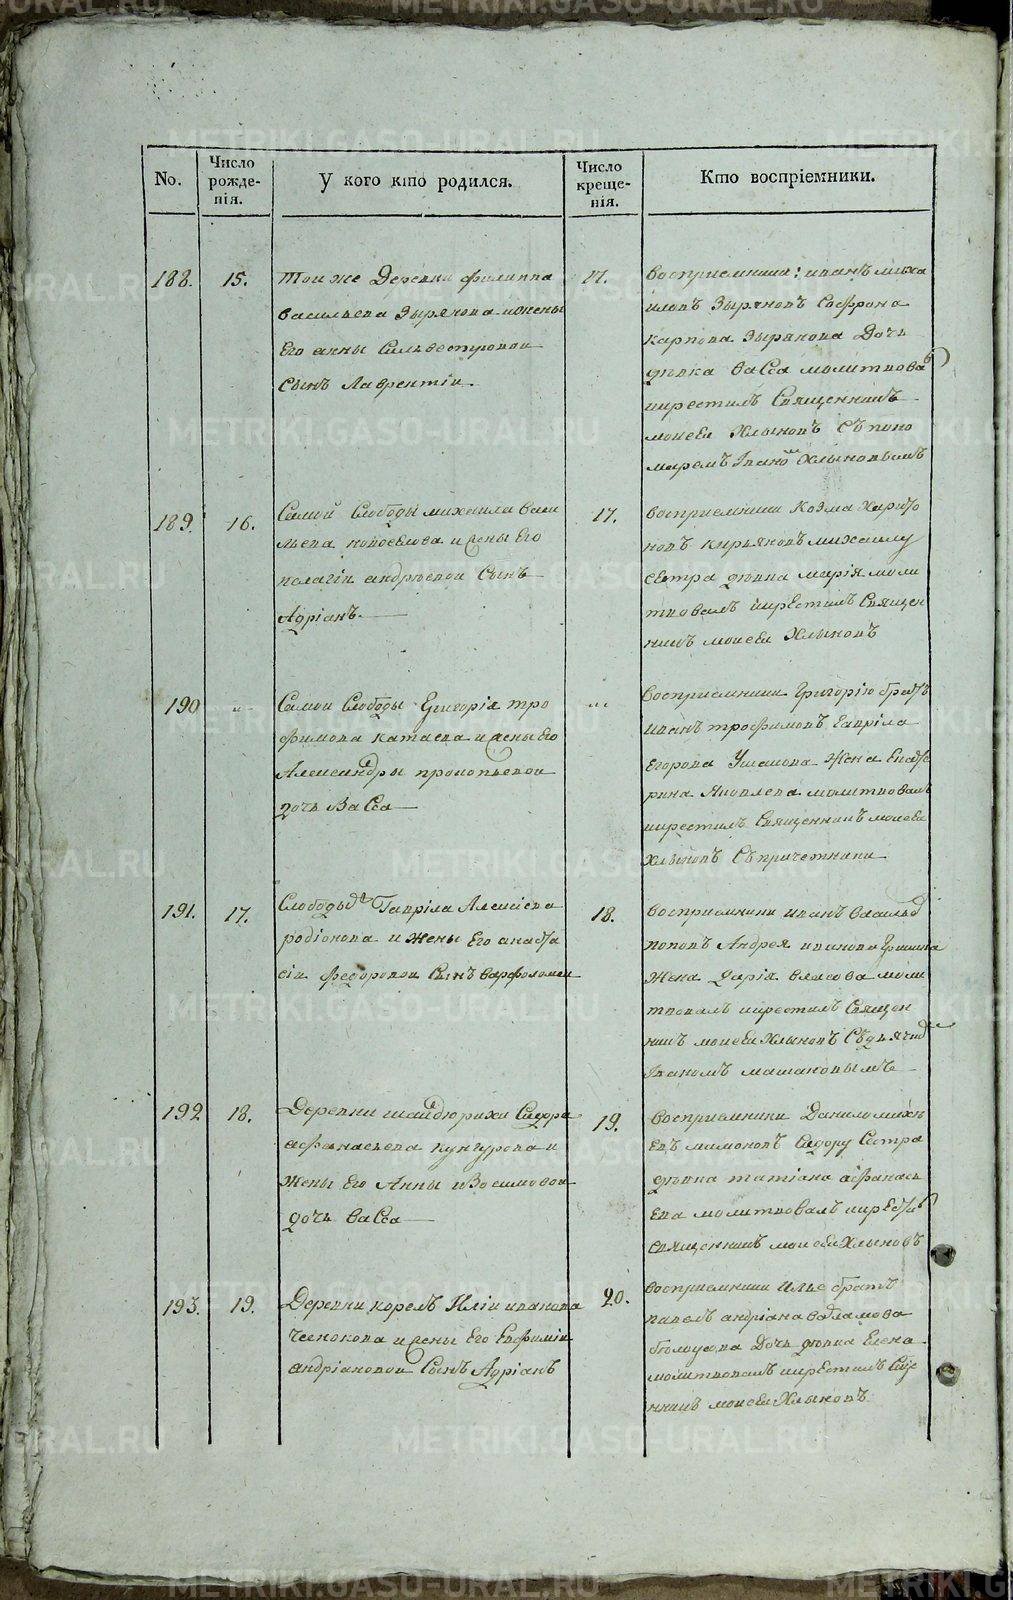 No.
Число рожде- нія.
У кого кто родился.
Число креще- нія.
Кто воспріемники.
188.
15.
тои же деревни филиппа
васильева Зырянова и жены
Его анны Сильвестровои
Сынъ Лаврентіи.
17.
воспріемники: иванъ миха
иловъ Зыряновъ Софрона
карпова Зырянова Дочь
дѣвка васса молитвова
и крестилъ Священникъ
моисеи Хлыновъ Съ поно
маремъ Іваномъ Хлыновымъ
189.
16.
Самой Слободы михаила васи
льева новоселова и жены Его
пелагіи андрѣевои Сынъ
Адріанъ.
17.
воспріемники Козма Харито
новъ кирьяковъ михаилу
сестра дѣвка марія моли
твовалъ и крестилъ Священ
никъ моисеи Хлыновъ
190
"
Самои Слободы Григорія тро
фимова катаева и жены Его
Александры прокопьевои
дочь Васса
"
Воспріемники Григорію братъ
иванъ трофимовъ Гавріла
Егорова Ушакова Жена Екате
рина Яковлева молитвовалъ
и крестилъ Священникъ моисеи
Хлыновъ Съ причетники
191.
17.
Слободы Гавріла Алексіева
родіонова и Жены Его анаста
сіи федоровои Сынъ варфоломеи
18.
воспріемники иванъ васильев
поповъ Андрея иванова
Жена дарія власова моли
твовалъ и крестилъ Священ
никъ моисеи Хлыновъ Съ дьячкомъ
Іваномъ машановымъ
192
18.
Деревни шайдюрихи Сидора
афанасьева кунгурова и
Жены Его Анны изосимовои
дочь васса
19.
воспріемники Данило михѣ
евъ мамоновъ Сидору Сестра
дѣвка татіана афанась
ева молитвовалъ и крести
священникъ моисеи Хлыновъ
193.
19.
Деревни корелъ Иліи иванова
Чеснокова и жены Его Евфиміи
андріановои Сынъ Адріанъ
20.
воспріемники Илье братъ
павелъ андріана
Дочь дѣвка Елена
молитвовалъ и крестилъ Свящ
нникъ моисеи Хлыновъ
METRIKI.GASO-URAL.RU